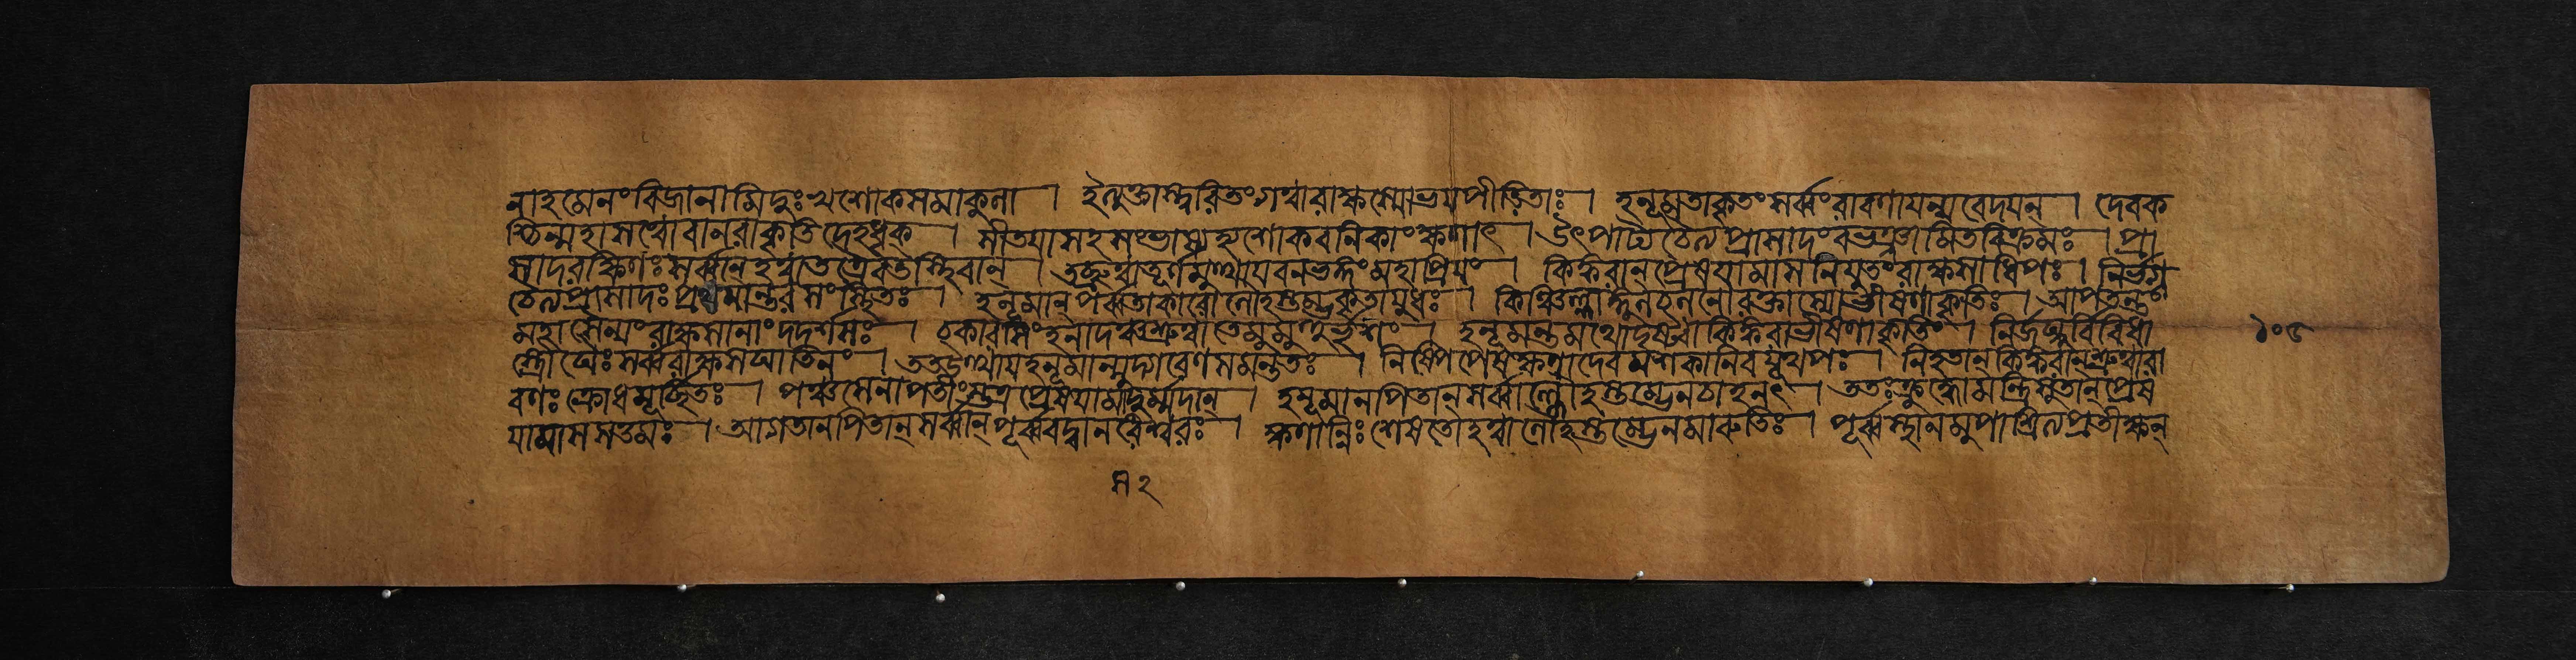 নাহমেনংবিজানামিদুঃখশোকসমাকুলা । ইত্যুক্তাস্ত্বরিতংগত্বারাক্ষস্যোভয়পীড়িতাঃ । হনূমতাকৃতংসর্ব্বংরাবণায়ন্যবেদয়ন্ । দেবক
শ্চিন্মহাসত্ত্বোবানরাকৃতিদেহধৃক্ । সীতয়াসহসংভাষ্যহ্যশোকবনিকাংক্ষণাৎ । উৎপাট্যচৈত্যপ্রাসাদংবভঞ্জামিতবিক্রমঃ । প্রা
সাদরক্ষিণঃসর্ব্বান্হত্বাতত্রৈবতস্থিবান্ । তচ্ছ্রুত্বাতূর্ণমুত্থায়বনভঙ্গংমহাপ্রিয়ং । কিঙ্করান্প্রেষয়ামাসনিযুতংরাক্ষসাধিপঃ । নির্ভগ্ন
চৈত্যপ্রাসাদঃপ্রথমান্তরসংস্থিতঃ । হনূমান্পর্ব্বতাকারোলোহস্তম্ভকৃতায়ুধঃ । কিঞ্চিল্লাঙ্গূলচলনোরক্তাস্যোভীষণাকৃতিঃ । আপতন্তং
মহাসৈন্যংরাক্ষসানাংদদর্শসঃ । চকারসিংহনাদঞ্চশ্রুত্বাতেমুমুহুর্ভৃশং । হনূমন্তমথোদৃষ্ট্বাকিঙ্করাভীষণাকৃতিং । নির্জঘ্নুর্বিবিধা
স্ত্রৌঘৈঃসর্ব্বরাক্ষসঘাতিনং । ততউত্থায়হনূমান্মুদ্গরেণসমন্ততঃ । নিষ্পিপেষক্ষণাদেবমশকানিবযূথপঃ । নিহতান্কিঙ্করান্শ্রুত্বারা
বণঃক্রোধমূর্চ্ছিতঃ । পঞ্চসেনাপতীংস্তত্রপ্রেষয়ামাসদুর্ম্মদান্ । হনূমানপিতান্সর্ব্বাল্লোহস্তম্ভেনচাহনৎ । ততঃক্রুদ্ধোমন্ত্রিসুতান্প্রেষ
য়ামাসসত্তমঃ । আগতানপিতান্সর্ব্বান্পূর্ব্ববদ্বানরেশ্বরঃ । ক্ষণান্নিঃশেষতোহত্বালোহস্তম্ভেনমারুতিঃ । পূর্ব্বস্থানমুপাশ্রিত্যপ্রতীক্ষন্
১০৫